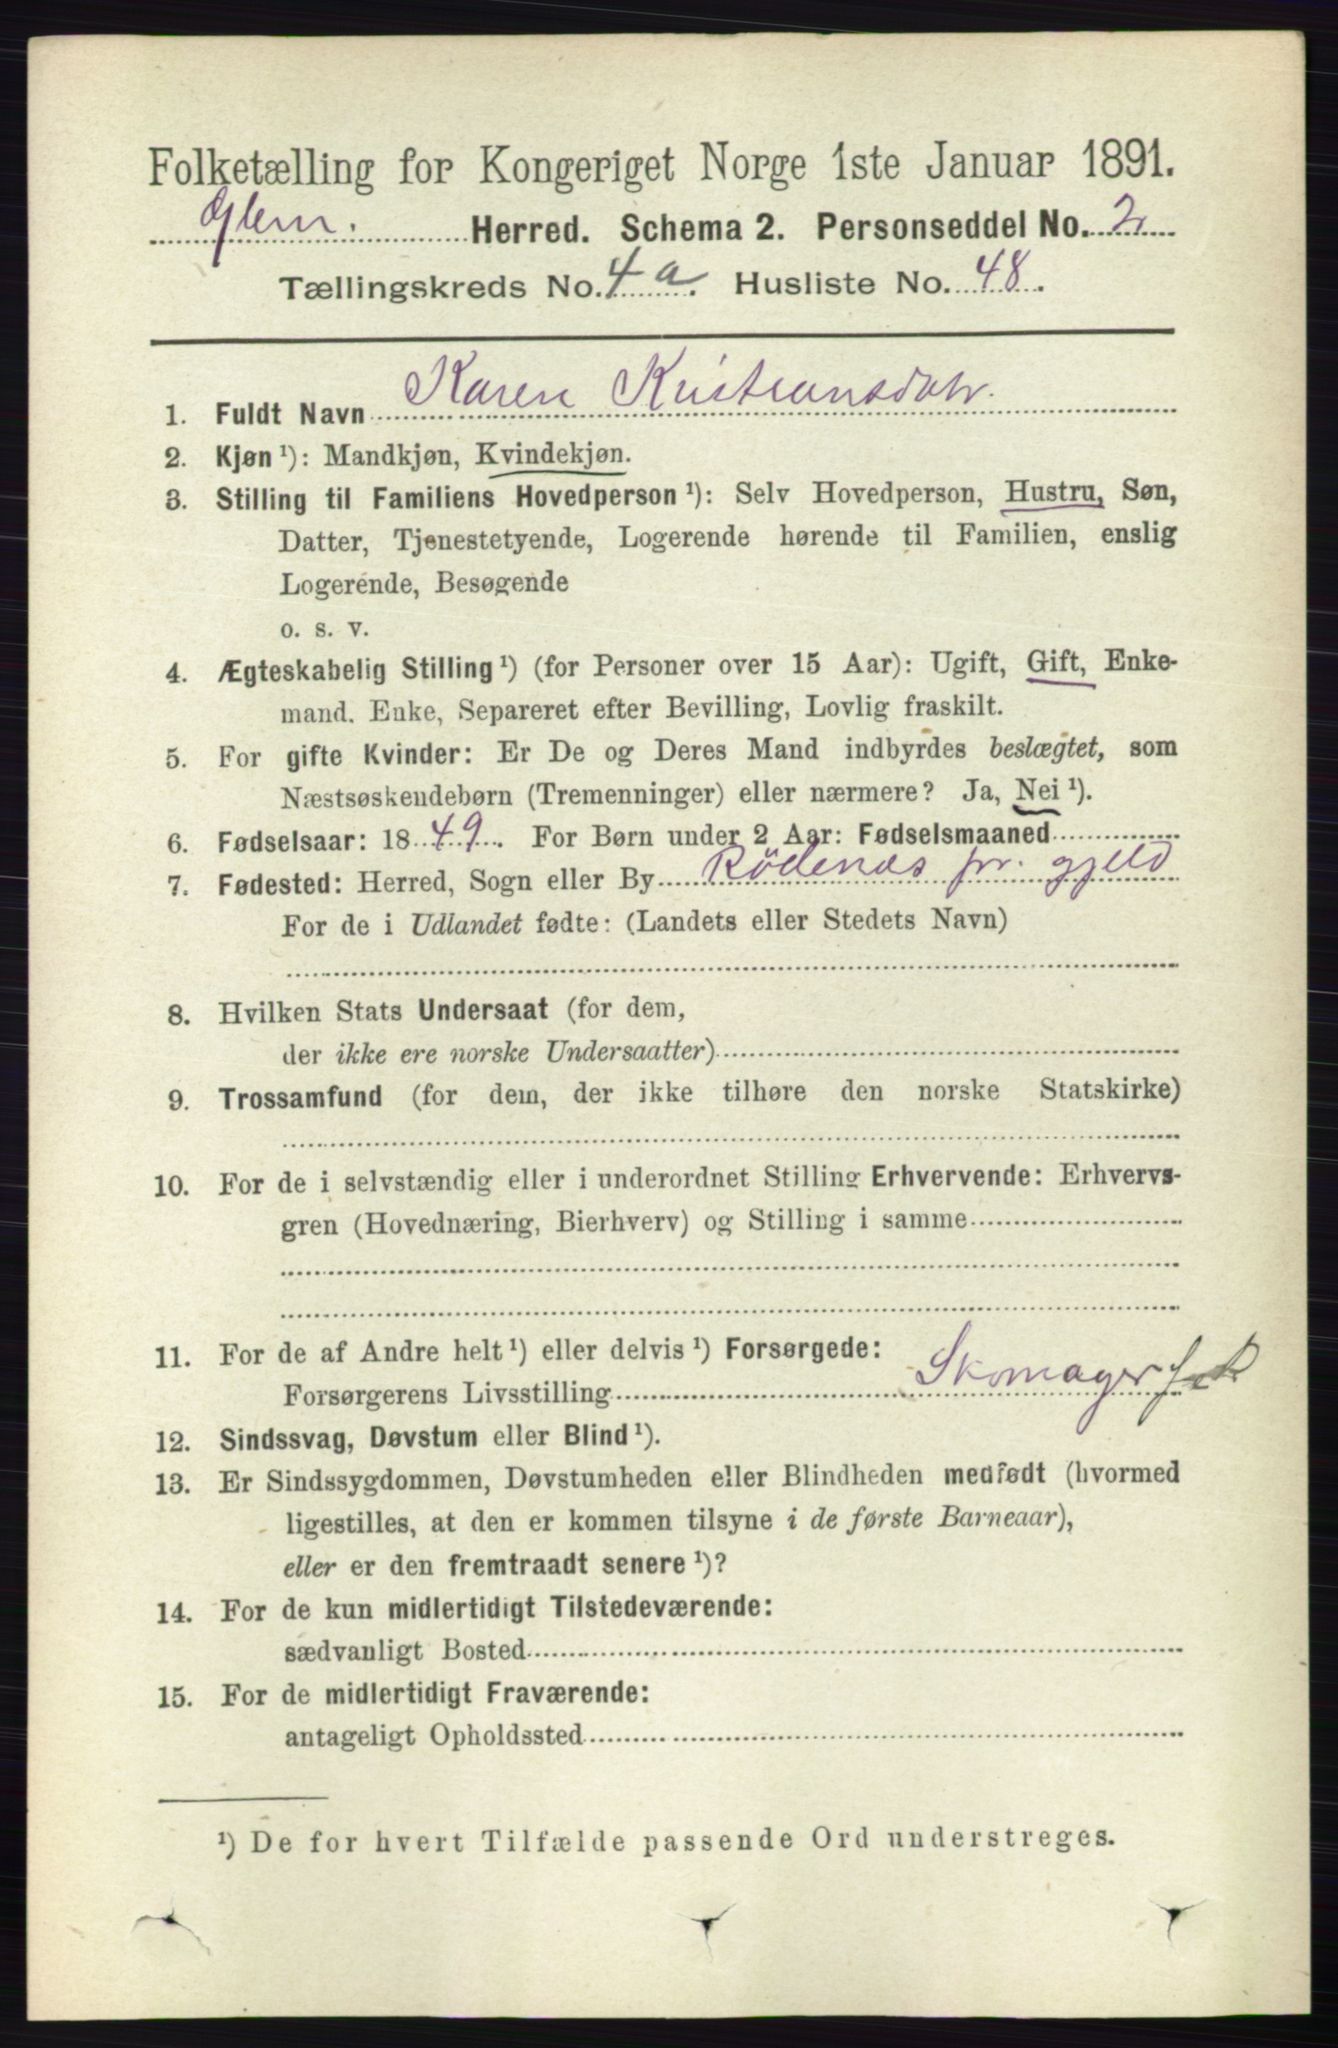 Folketælling for Kongeriget Norge 1ste Januar 1891.
Glem. Herred. Schema 2. Personseddel No. 2
Tællingskreds No. 4 a. Husliste No. 48.
1. Fuldt Navn Karen Kristiansdatr.
2. Kjøn ¹): Mandkjøn, Kvindekjøn.
3. Stilling til Familiens Hovedperson ¹): Selv Hovedperson, Hustru, Søn,
Datter, Tjenestetyende, Logerende hørende til Familien, enslig
Logerende, Besøgende
o. s. v.
4. Ægteskabelig Stilling ¹) (for Personer over 15 Aar): Ugift, Gift, Enke-
mand. Enke, Separeret efter Bevilling, Lovlig fraskilt.
5. For gifte Kvinder: Er De og Deres Mand indbyrdes beslægtet, som
Næstsøskendebørn (Tremenninger) eller nærmere? Ja, Nei ¹).
6. Fødselsaar: 1849. For Børn under 2 Aar: Fødselsmaaned
7. Fødested: Herred, Sogn eller By Rödenæs pr. gjeld
For de i Udlandet fødte: (Landets eller Stedets Navn)
8. Hvilken Stats Undersaat (for dem,
der ikke ere norske Undersaatter)
9. Trossamfund (for dem, der ikke tilhøre den norske Statskirke)
10. For de i selvstændig eller i underordnet Stilling Erhvervende: Erhvervs-
gren (Hovednæring, Bierhverv) og Stilling i samme
11. For de af Andre helt ¹) eller delvis ¹) Forsørgede:
Forsørgerens Livsstilling Skomager
12. Sindssvag, Døvstum eller Blind ¹).
13. Er Sindssygdommen, Døvstumheden eller Blindheden medfødt (hvormed
ligestilles, at den er kommen tilsyne i de første Barneaar),
eller er den fremtraadt senere ¹)?
14. For de kun midlertidigt Tilstedeværende:
sædvanligt Bosted
15. For de midlertidigt Fraværende:
antageligt Opholdssted
¹) De for hvert Tilfælde passende Ord understreges.